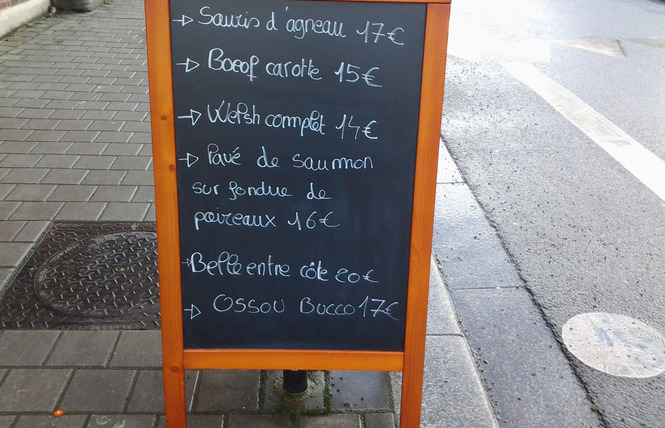 → Souris d'agneau 17€
→ Boeuf carotte 15€
→ Welsh complet 14€
→ Pavé de saumon
sur fondue de
poireaux 16€
→ Belle entre côte 20€
→ OSSOU BUCCO 17€